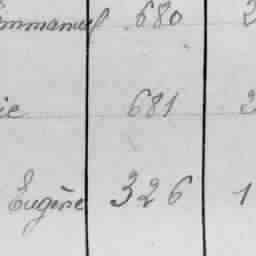 Emmanuel 680 2
ie 681 2
Eugène 326 1